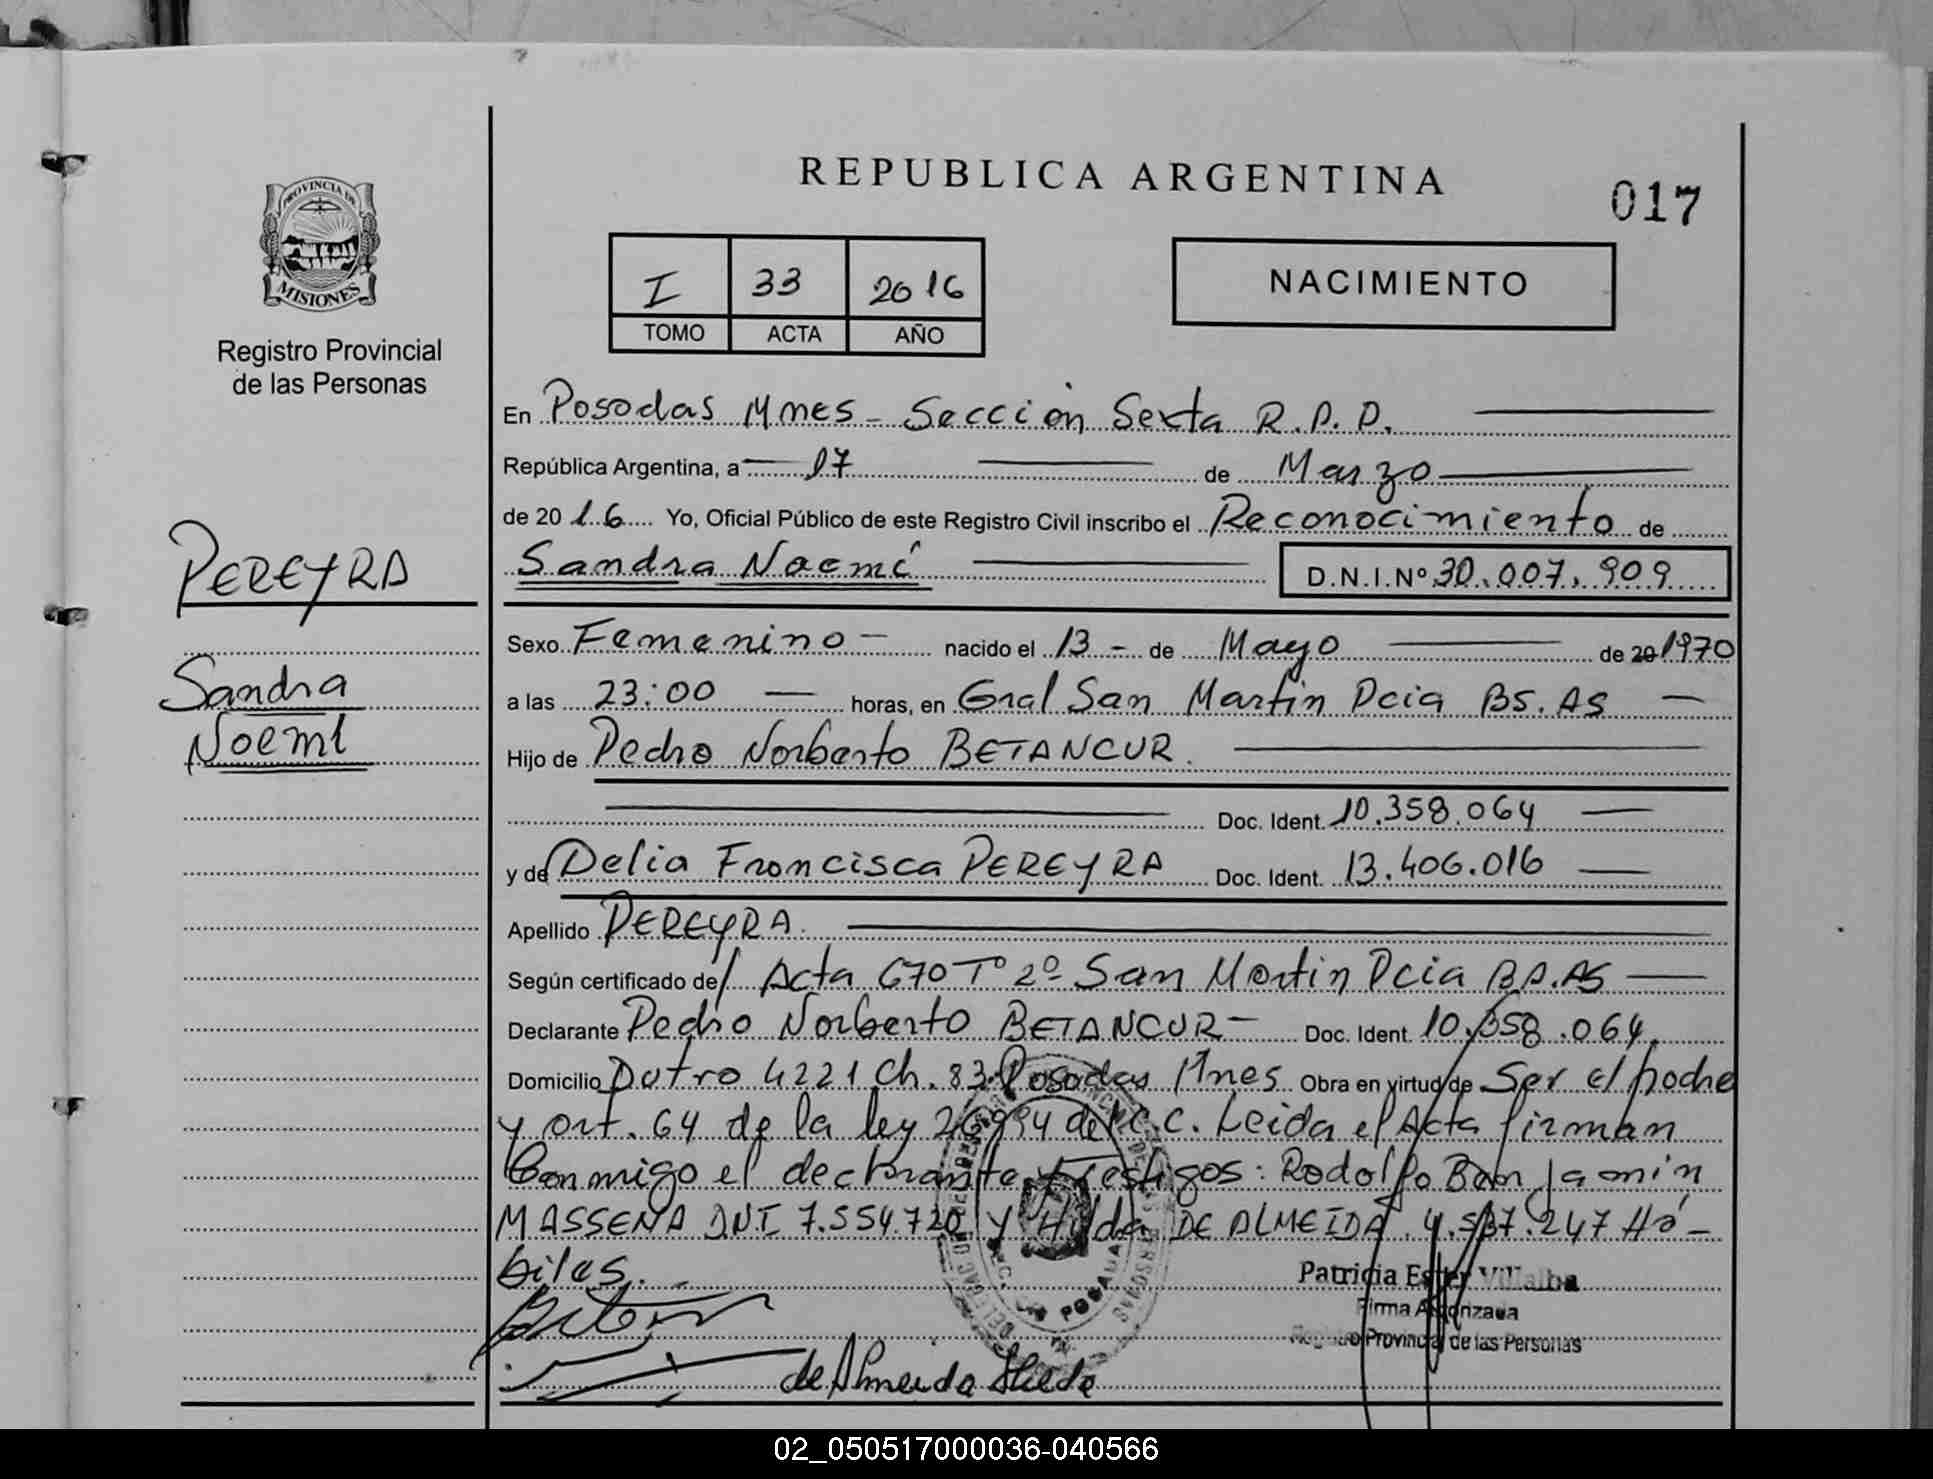 PROVINCIA DE
MISIONES
Registro Provincial
de las Personas
PEREYRA
Sandra
Noemí
REPUBLICA ARGENTINA
017
I 33 2016
TOMO ACTA AÑO
NACIMIENTO
En Posadas Mnes - Sección Sexta R.P.P.
República Argentina, a 17 de Marzo
de 2016 Yo, Oficial Público de este Registro Civil inscribo el Reconocimiento de
Sandra Noemí D.N.I.Nº 30.007.909
Sexo Femenino - nacido el 13 - de Mayo de 20 1970
a las 23:00 horas, en Gral San Martin Pcia BS.AS
Hijo de Pedro Norberto BETANCUR.
Doc. Ident. 10.358.064
y de Delia Francisca PEREYRA Doc. Ident. 13.406.016
Apellido PEREYRA.
Según certificado de/ Acta 670 Tº 2º San Martin Pcia BS.AS
Declarante Pedro Norberto BETANCUR - Doc. Ident. 10.358.064.
Domicilio 4221 Ch. 83. Posadas Mnes Obra en virtud de Ser el padre
y art. 64 de la ley 26994 del C.C. Leida el Acta firman
Conmigo el declarante y testigos: Rodolfo Benjamin
MASSENA DNI 7.554.720 y Hilda DE ALMEIDA 4.537.247 Há-
biles.
Patricia Ester Villalba
Firma Autorizada
Registro Provincial de las Personas
de Almeida Hilda
02_050517000036-040566